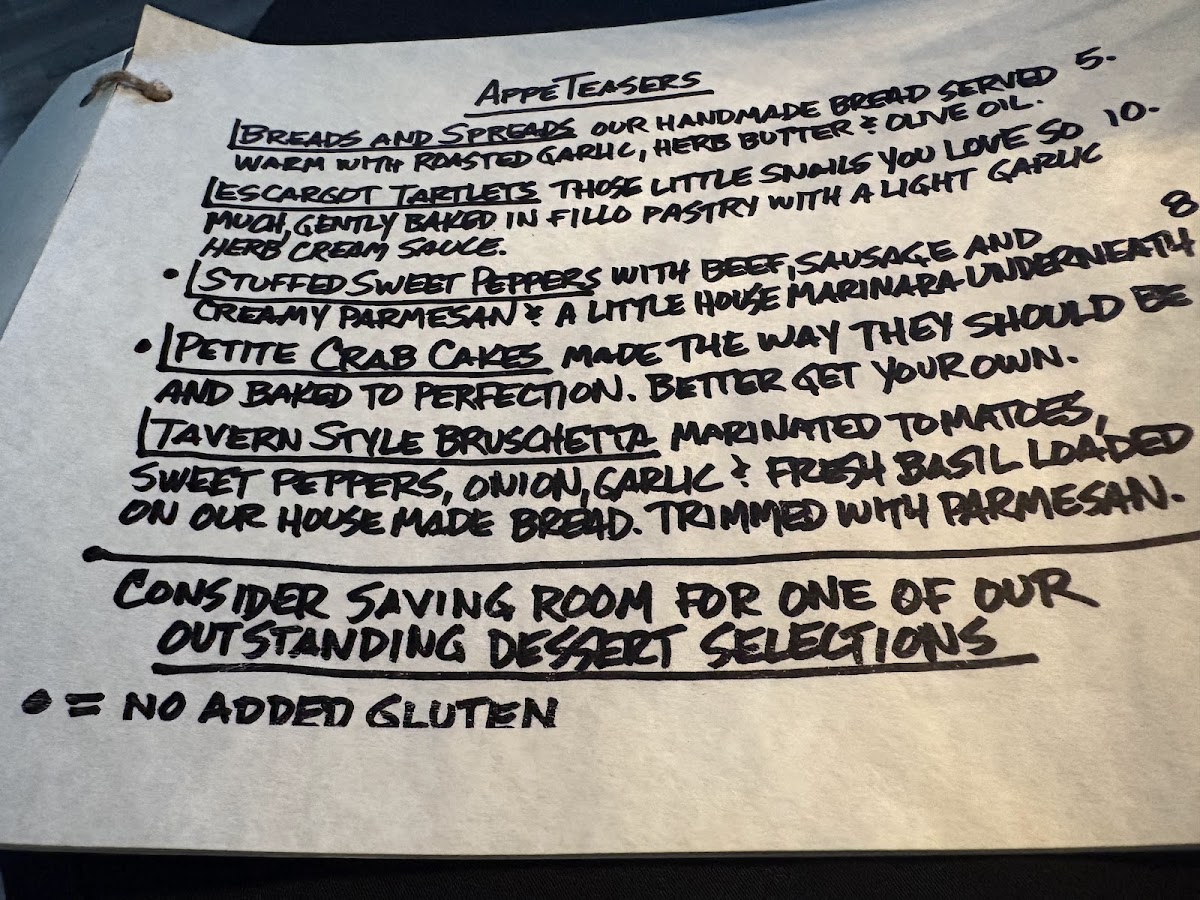 APPETEASERS
BREADS AND SPREADS OUR HANDMADE BREAD SERVED 5.
WARM WITH ROASTED GARLIC, HERB BUTTER & OLIVE OIL.
ESCARGOT TARTLETS THOSE LITTLE SNAILS YOU LOVE SO 10.
MUCH, GENTLY BAKED IN FILLO PASTRY WITH A LIGHT GARLIC
HERB CREAM SAUCE.
• STUFFED SWEET PEPPERS WITH BEEF, SAUSAGE AND 8
CREAMY PARMESAN & A LITTLE HOUSE MARINARA UNDERNEATH
• PETITE CRAB CAKES MADE THE WAY THEY SHOULD BE
AND BAKED TO PERFECTION. BETTER GET YOUR OWN.
TAVERN STYLE BRUSCHETTA MARINATED TOMATOES,
SWEET PEPPERS, ONION, GARLIC & FRESH BASIL LOADED
ON OUR HOUSE MADE BREAD. TRIMMED WITH PARMESAN.
CONSIDER SAVING ROOM FOR ONE OF OUR
OUTSTANDING DESSERT SELECTIONS
• = NO ADDED GLUTEN